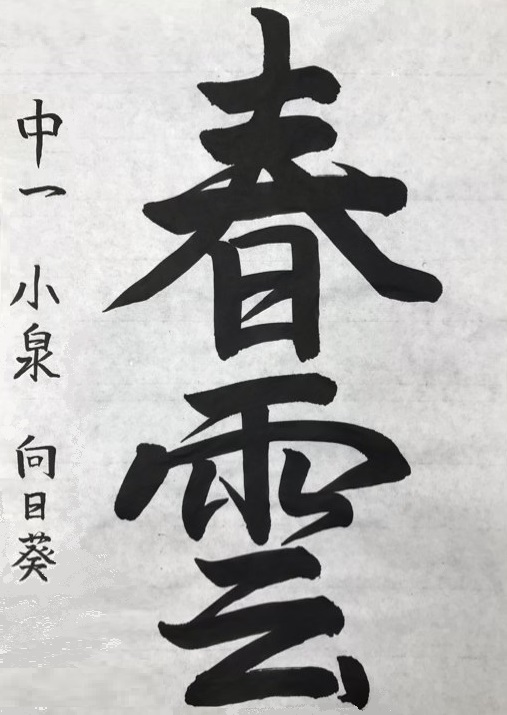 春雲
中一 小泉 向日葵